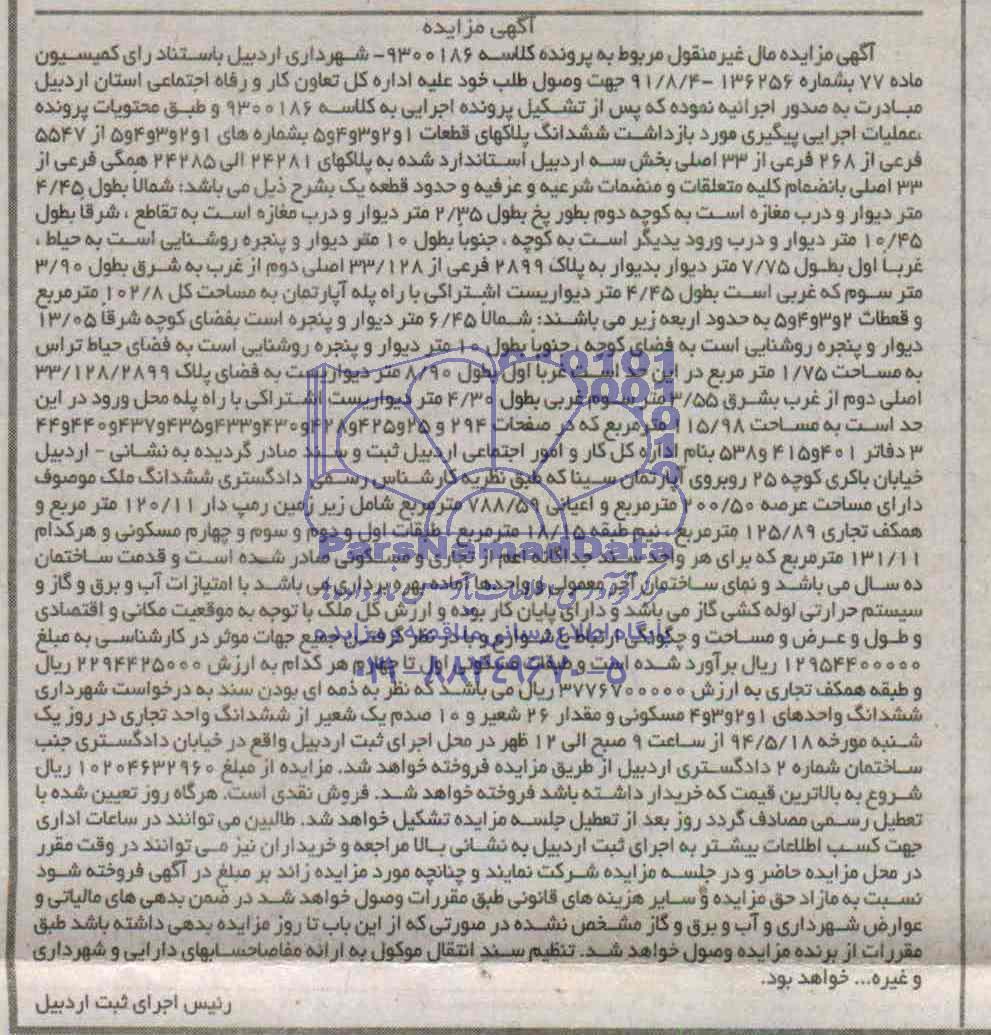 آگهی مزایده
آگهی مزایده مال غیر منقول مربوط به پرونده کلاسه ۹۳۰۰۱۸۶- شهرداری اردبیل باستناد رای کمیسیون
ماده ۷۷ بشماره ۱۳۶۲۵۶ -۹۱/۸/۴ جهت وصول طلب خود علیه اداره کل تعاون کار و رفاه اجتماعی استان اردبیل
مبادرت به صدور اجرائیه نموده که پس از تشکیل پرونده اجرایی به کلاسه ۹۳۰۰۱۸۶ و طبق محتویات پرونده
،عملیات اجرایی پیگیری مورد بازداشت ششدانگ پلاکهای قطعات ۱و۲و۳و۴و۵ بشماره های ۱و۲و۳و۴و۵ از ۵۵۴۷
فرعی از ۲۶۸ فرعی از ۳۳ اصلی بخش سه اردبیل استاندارد شده به پلاکهای ۲۴۲۸۱ الی ۲۴۲۸۵ همگی فرعی از
۳۳ اصلی بانضمام کلیه متعلقات و منضمات شرعیه و عرفیه و حدود قطعه یک بشرح ذیل می باشد: شمالاً بطول ۴/۴۵
متر دیوار و درب مغازه است به کوچه دوم بطور پخ بطول ۲/۳۵ متر دیوار و درب مغازه است به تقاطع ، شرقا بطول
۱۰/۴۵ متر دیوار و درب ورود یدیگر است به کوچه ، جنوبا بطول ۱۰ متر دیوار و پنجره روشنایی است به حیاط ،
غربا اول بطول ۷/۷۵ متر دیوار بدیوار به پلاک ۲۸۹۹ فرعی از ۳۳/۱۲۸ اصلی دوم از غرب به شرق بطول ۳/۹۰
متر سوم که غربی است بطول ۴/۴۵ متر دیواریست اشتراکی با راه پله آپارتمان به مساحت کل ۱۰۲/۸ مترمربع
و قطعات ۲و۳و۴و۵ به حدود اربعه زیر می باشند: شمالاً ۶/۴۵ متر دیوار و پنجره است بفضای کوچه شرقا ۱۳/۰۵
دیوار و پنجره روشنایی است به فضای کوچه ، جنوبا بطول ۱۰ متر دیوار و پنجره روشنایی است به فضای حیاط تراس
به مساحت ۱/۷۵ متر مربع در این حد است غربا اول بطول ۸/۹۰ متر دیواریست به فضای پلاک ۳۳/۱۲۸/۲۸۹۹
اصلی دوم از غرب بشرق ۳/۵۵ متر سوم غربی بطول ۴/۳۰ متر دیواریست اشتراکی با راه پله محل ورود در این
حد است به مساحت ۱۱۵/۹۸ مترمربع که در صفحات ۲۹۴ و ۲۵و۴۲۵و۴۲۸و۴۳۰و۴۳۳و۴۳۵و۴۳۷و۴۴۰و۴۴
۳ دفاتر ۴۰۱و۴۱۵ و۵۳۸ بنام اداره کل کار و امور اجتماعی اردبیل ثبت و سند صادر گردیده به نشانی - اردبیل
خیابان باکری کوچه ۲۵ روبروی آپارتمان سینا که طبق نظریه کارشناس رسمی دادگستری ششدانگ ملک موصوف
دارای مساحت عرصه ۲۰۰/۵۰ مترمربع و اعیانی ۷۸۸/۵۹ مترمربع شامل زیر زمین رمپ دار ۱۲۰/۱۱ متر مربع و
همکف تجاری ۱۲۵/۸۹ مترمربع ، نیم طبقه ۱۸/۱۵ مترمربع ، طبقات اول و دوم و سوم و چهارم مسکونی و هرکدام
۱۳۱/۱۱ مترمربع که برای هر واحد سند جداگانه اعم از تجاری و مسکونی صادر شده است و قدمت ساختمان
ده سال می باشد و نمای ساختمان آجر معمولی و واحدها آماده بهره برداری می باشد با امتیازات آب و برق و گاز و
سیستم حرارتی لوله کشی گاز می باشد و دارای پایان کار بوده و ارزش کل ملک با توجه به موقعیت مکانی و اقتصادی
و طول و عرض و مساحت و چگونگی ارتباط با شوارع و با در نظر گرفتن جمیع جهات موثر در کارشناسی به مبلغ
۱۲۹۵۴۴۰۰۰۰۰ ریال برآورد شده است و طبقات مسکونی اول تا چهارم هر کدام به ارزش ۲۲۹۴۴۲۵۰۰۰ ریال
و طبقه همکف تجاری به ارزش ۳۷۷۶۷۰۰۰۰۰ ریال می باشد که نظر به ذمه ای بودن سند به درخواست شهرداری
ششدانگ واحدهای ۱و۲و۳و۴ مسکونی و مقدار ۲۶ شعیر و ۱۰ صدم یک شعیر از ششدانگ واحد تجاری در روز یک
شنبه مورخه ۹۴/۵/۱۸ از ساعت ۹ صبح الی ۱۲ ظهر در محل اجرای ثبت اردبیل واقع در خیابان دادگستری جنب
ساختمان شماره ۲ دادگستری اردبیل از طریق مزایده فروخته خواهد شد. مزایده از مبلغ ۱۰۲۰۴۶۳۲۹۶۰ ریال
شروع به بالاترین قیمت که خریدار داشته باشد فروخته خواهد شد. فروش نقدی است. هرگاه روز تعیین شده با
تعطیل رسمی مصادف گردد روز بعد از تعطیل جلسه مزایده تشکیل خواهد شد. طالبین می توانند در ساعات اداری
جهت کسب اطلاعات بیشتر به اجرای ثبت اردبیل به نشانی بالا مراجعه و خریداران نیز می توانند در وقت مقرر
در محل مزایده حاضر و در جلسه مزایده شرکت نمایند و چنانچه مورد مزایده زائد بر مبلغ در آگهی فروخته شود
نسبت به مازاد حق مزایده و سایر هزینه های قانونی طبق مقررات وصول خواهد شد در ضمن بدهی های مالیاتی و
عوارض شهرداری و آب و برق و گاز مشخص نشده در صورتی که از این باب تا روز مزایده بدهی داشته باشد طبق
مقررات از برنده مزایده وصول خواهد شد. تنظیم سند انتقال موکول به ارائه مفاصاحسابهای دارایی و شهرداری
و غیره... خواهد بود.
رئیس اجرای ثبت اردبیل
ParsNamadData
پایگاه اطلاع رسانی مناقصه و مزایده
۰۲۱-۸۸۳۴۹۶۷۰-۵